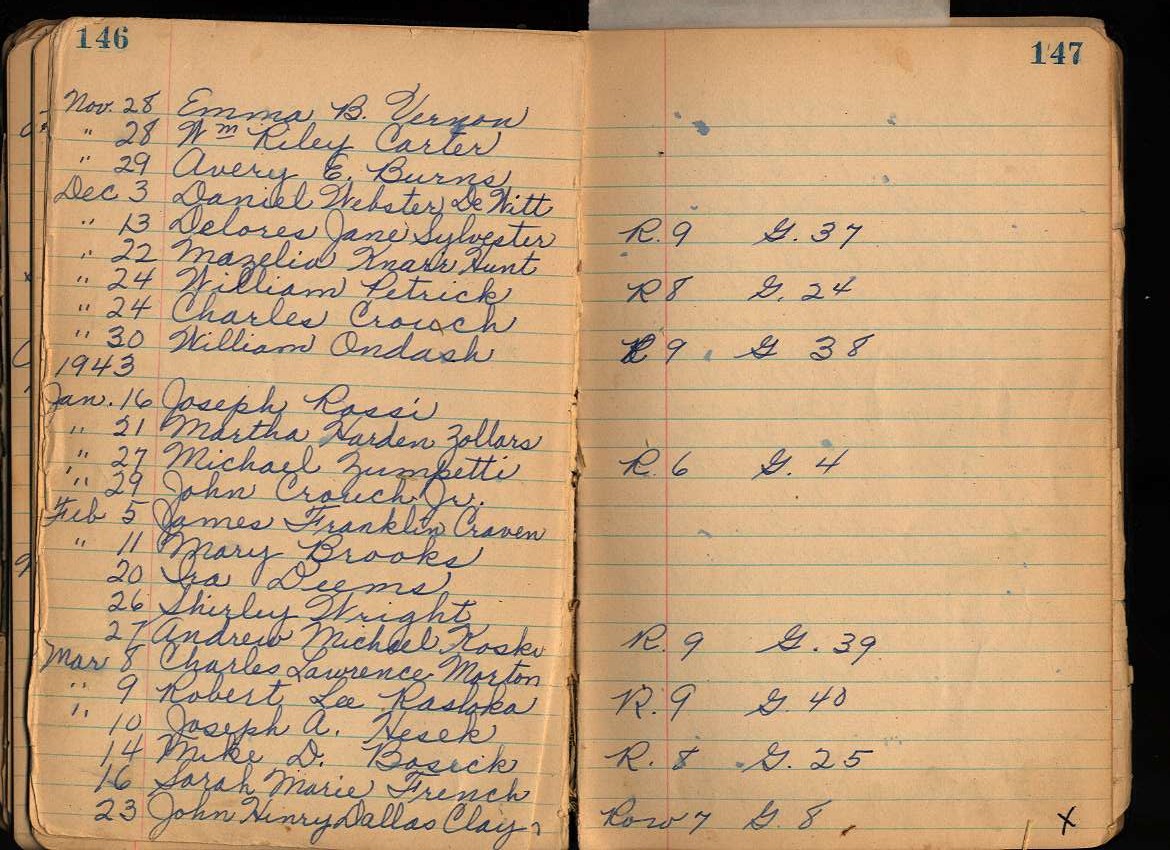 146
Nov. 28 Emma B. Vernon
" 28 Wm Riley Carter
" 29 Avery E. Burns
Dec 3 Daniel Webster De Witt
" 13 Delores Jane Sylvester R. 9 G. 37
" 22 Mazelia Knarr Hunt
" 24 William Petrick R 8 G. 24
" 24 Charles Crouch
" 30 William Ondash R 9 G 38
1943
Jan. 16 Joseph Rossi
" 21 Martha Harden Zollars
" 27 Michael Zumpetti R. 6 G. 4
" 29 John Crouch Jr.
Feb 5 James Franklin Craven
" 11 Mary Brooks
20 Ira Deems
26 Shirley Wright
27 Andrew Michael Kosko R. 9 G. 39
Mar 8 Charles Lawrence Morton
" 9 Robert Lee Rasloka R. 9 G. 40
" 10 Joseph A. Hesek
14 Mike D. Bosick R. 8 G. 25
16 Sarah Marie French
23 John Henry Dallas Clay Row 7 G. 8 x
147